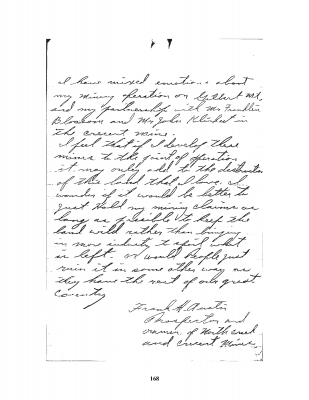 I have mixed emotions about
my mining operation on Gilbert Mt.
and my partnership with Mr. Franklin
and Mr. John in
the crecent mine.
I feel that if I develop these
mines to the point of operation
it may only add to the destruction
of this land that I love. I
wonder if it would be better to
just hold my mining claims as
long as possible to keep the
land wild rather than bringing
in more industry to spoil what
is left. or would people just
ruin it in some other way as
they have the rest of our great
Country
Frank H. Austin
Prospector and
owner of North creek
and Crecent Mines
168